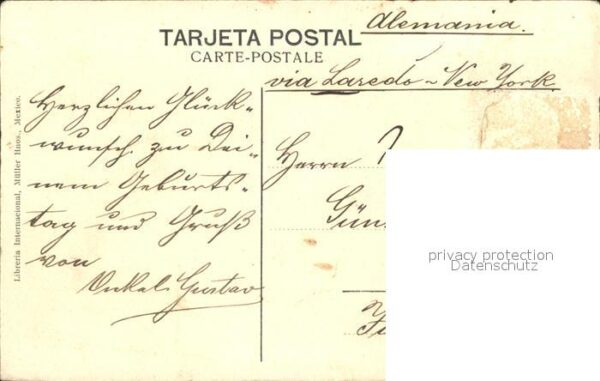 Alemania.
TARJETA POSTAL
CARTE-POSTALE
via Laredo - New York.
Herzlichen Glück-
wunsch zu Dei-
nem Geburts-
tag und Gruß
von
Onkel Gustav
Herrn
Libreria Internacional, Müller Hnos., Mexico.
privacy protection
Datenschutz